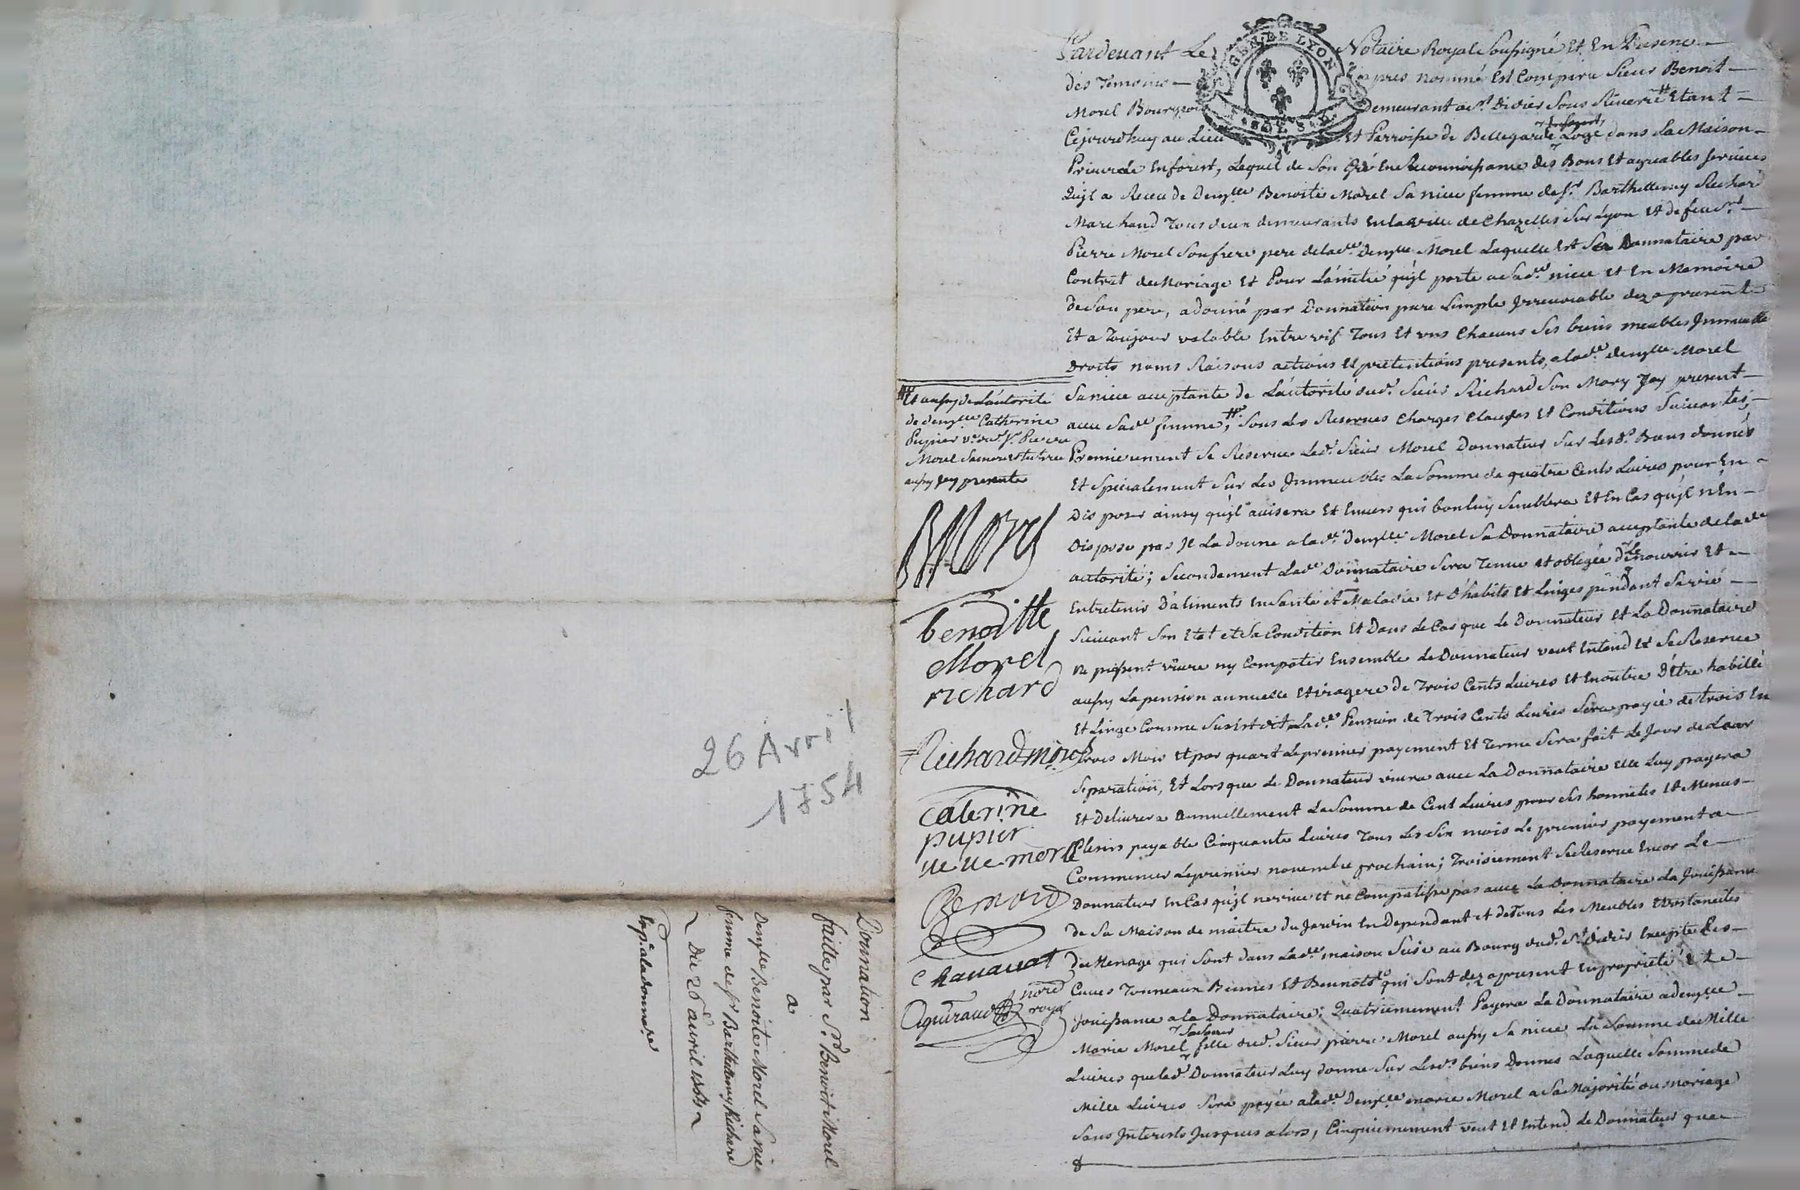 Pardevant Le Notaire Royal Soussigné Et En Presence
des Temoins apres nommé Est Comparu Sieur Benoit
Morel Bourgeois demeurant a St Didier Sous Riverie Etant
Cejourdhuy au Lieu Et Parroisse de Bellegarde Logé dans La Maison
GEN DE LYON
Enforest, Lequel de Son Gré En Reconnoissance des Bons Et agreables services
Quil a Receu de Demlle Benoite Morel Sa niece femme de Sr Barthellemy Richard
Marchand Tous deux demeurants En la ville de Chazelles Sur Lyon Et de feu Sr
Pierre Morel Son frere pere de lade Demlle Morel Laquelle Est Sa Donnataire par
Contrat de Mariage Et Pour Lamitié quil porte a Sade niece Et En Memoire
de Son pere, a donné par Donnation pure Simple Irrevocable dez a present
Et a Toujour valable Entre vif Tous Et uns Chacuns Ses biens meubles Immeubles
Droits noms Raisons actions Et pretentions presents, a lade demlle Morel
Sa niece acceptante de Lautorité dud. Sieur Richard Son Mary Icy present
avec Sade femme, Sous Les Reserves Charges Clauses Et Conditions Suivantes,
Premierement Se Reserve Led. Sieur Morel Donnateur Sur Lesd. Biens donnés
Et Specialement Sur Les Immeubles La Somme de quatre Cents Livres pour En
Disposer ainsy quil avisera Et Envers qui bon luy Semblera Et En Cas quil nEn
Dispose pas Il La donne a lade demlle Morel Sa Donnataire acceptante de lade
autorité; Secondement Lade Donnataire Sera Tenue Et obligée de Le nourrir Et
Entretenir Daliments En Santé Et Maladie Et dhabits Et Linges pendant Sa vie
Suivant Son Etat et Sa Condition Et Dans Le Cas que Le Donnateur Et La Donnataire
ne pussent vivre ny Compatir Ensemble Le Donnateur veut Entend Et Se Reserve
aussy La pension annuelle Et viagere de Trois Cents Livres Et En outre Dêtre habillé
Et Lingé Comme Susest dit Lade Pension de Trois Cents Livres Sera payée de trois En
Trois Mois Et par quart Le premier payement Et Terme Sera fait Le Jour de Leur
Separation, Et Lorsque Le Donnateur vivra avec La Donnataire Elle Luy payera
Et Delivrera annuellement La Somme de Cent Livres pour Ses honnetes Et Menus
Plesirs payable Cinquante Livres Tous Les Six mois Le premier payement a
Commencer Le premier novembre prochain; Troisiement Se Reserve Encor Le
Donnateur En Cas quil ne vive et ne Compatisse pas avec La Donnataire La Jouissance
de Sa Maison de maitre du Jardin En Dependant et de Tous Les Meubles Et Ostanciles
du Menage qui Sont dans Lade maison Sise au Bourg dud. St Didier Excepté Les
Cuves Tonneaux Bennes Et Bennots qui Sont dez a present En proprieté Et
Jouissance a la Donnataire; Quatriemement Payera La Donnataire a demlle
Marie Morel Sa Soeur fille dud. Sieur pierre Morel aussy Sa niece La Somme de Mille
Livres que led. Donnateur Luy donne Sur Lesd. biens Donnés Laquelle Somme de
Mille Livres Sera payée a lade Demlle marie Morel a Sa Majorité ou Mariage
Sans Interests Jusques alors, Cinquiemement veut Et Entend Le Donnateur que
Et aussy de Lautorité
de demlle Catherine
Pupier ve dud. Sr Pierre
Morel Sa mere
aussy Icy presente
BMorel
benoitte
Morel
richard
Richard
caterine
pupier
veve morel
Bernard
Chanavat
Aguiraud
nore
royal
26 Avril
1754
Donnation
faitte par Sr Benoit Morel
a
Demlle Benoite Morel Sa niece
femme de Sr Barthelemy Richard
Du 26e avril 1754